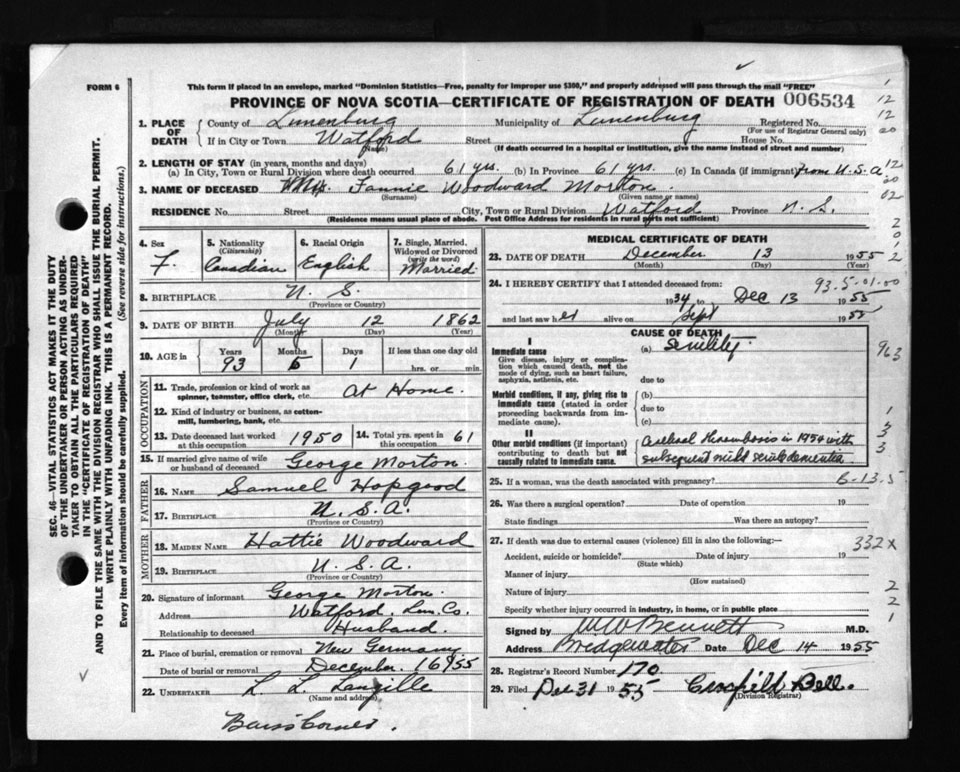 FORM 6
This form if placed in an envelope, marked "Dominion Statistics—Free, penalty for improper use $300," and properly addressed will pass through the mail "FREE"
PROVINCE OF NOVA SCOTIA—CERTIFICATE OF REGISTRATION OF DEATH 006534
1. PLACE OF DEATH
County of Lunenburg Municipality of Lunenburg Registered No.
(For use of Registrar General only)
If in City or Town Watford Street House No.
(Name) (If death occurred in a hospital or institution, give the name instead of street and number)
2. LENGTH OF STAY (in years, months and days)
(a) In City, Town or Rural Division where death occurred 61 yrs. (b) In Province 61 yrs. (c) In Canada (if immigrant) from U.S.A
3. NAME OF DECEASED Fannie Woodward Morton
(Surname) (Given name or names)
RESIDENCE No. Street City, Town or Rural Division Watford Province N.S.
(Residence means usual place of abode. Post Office Address for residents in rural parts not sufficient)
4. Sex F.
5. Nationality (Citizenship) Canadian
6. Racial Origin English
7. Single, Married, Widowed or Divorced (write the word) Married
8. BIRTHPLACE N.S.
(Province or Country)
9. DATE OF BIRTH July 12 1862
(Month) (Day) (Year)
10. AGE in Years Months Days If less than one day old
93 5 1 hrs. or min.
OCCUPATION
11. Trade, profession or kind of work as spinner, teamster, office clerk, etc. At Home.
12. Kind of industry or business, as cotton-mill, lumbering, bank, etc.
13. Date deceased last worked at this occupation 1950
14. Total yrs. spent in this occupation 61
15. If married give name of wife or husband of deceased George Morton.
FATHER
16. NAME Samuel Hopgood
17. BIRTHPLACE U.S.A.
(Province or Country)
MOTHER
18. MAIDEN NAME Hattie Woodward
19. BIRTHPLACE U.S.A.
(Province or Country)
20. Signature of informant George Morton.
Address Watford, Lun. Co.
Relationship to deceased Husband.
21. Place of burial, cremation or removal New Germany
Date of burial or removal December 16 1955
22. UNDERTAKER L. L. Langille
(Name and address)
MEDICAL CERTIFICATE OF DEATH
23. DATE OF DEATH December 13 1955
(Month) (Day) (Year)
93.5.01.00
24. I HEREBY CERTIFY that I attended deceased from:
1934 to Dec 13 1955
and last saw her alive on Sept 1955
CAUSE OF DEATH
I
Immediate cause
Give disease, injury or complication which caused death, not the mode of dying, such as heart failure, asphyxia, asthenia, etc.
(a) Senility
due to
Morbid conditions, if any, giving rise to immediate cause (stated in order proceeding backwards from immediate cause).
(b)
due to
(c)
II
Other morbid conditions (if important) contributing to death but not causally related to immediate cause.
Cerebral thrombosis in 1954 with
subsequent mild senile dementia
25. If a woman, was the death associated with pregnancy?
6-13-5
26. Was there a surgical operation? Date of operation 19
State findings Was there an autopsy?
27. If death was due to external causes (violence) fill in also the following:—
332x
Accident, suicide or homicide? Date of injury 19
(State which)
Manner of injury
(How sustained)
Nature of injury
Specify whether injury occurred in industry, in home, or in public place
Signed by W W Bennett M.D.
Address Bridgewater Date Dec 14 1955
28. Registrar's Record Number 170
29. Filed Dec 31 1955 Bell.
(Division Registrar)
12
12
20
12
20
02
2
0
1
2
963
1
3
3
2
2
1
SEC. 46—VITAL STATISTICS ACT MAKES IT THE DUTY
OF THE UNDERTAKER OR PERSON ACTING AS UNDER-
TAKER TO OBTAIN ALL THE PARTICULARS REQUIRED
IN THE "CERTIFICATE OF REGISTRATION OF DEATH"
AND TO FILE THE SAME WITH THE DIVISION REGISTRAR WHO SHALL ISSUE THE BURIAL PERMIT.
WRITE PLAINLY WITH UNFADING INK. THIS IS A PERMANENT RECORD.
Every item of information should be carefully supplied. (See reverse side for instructions.)